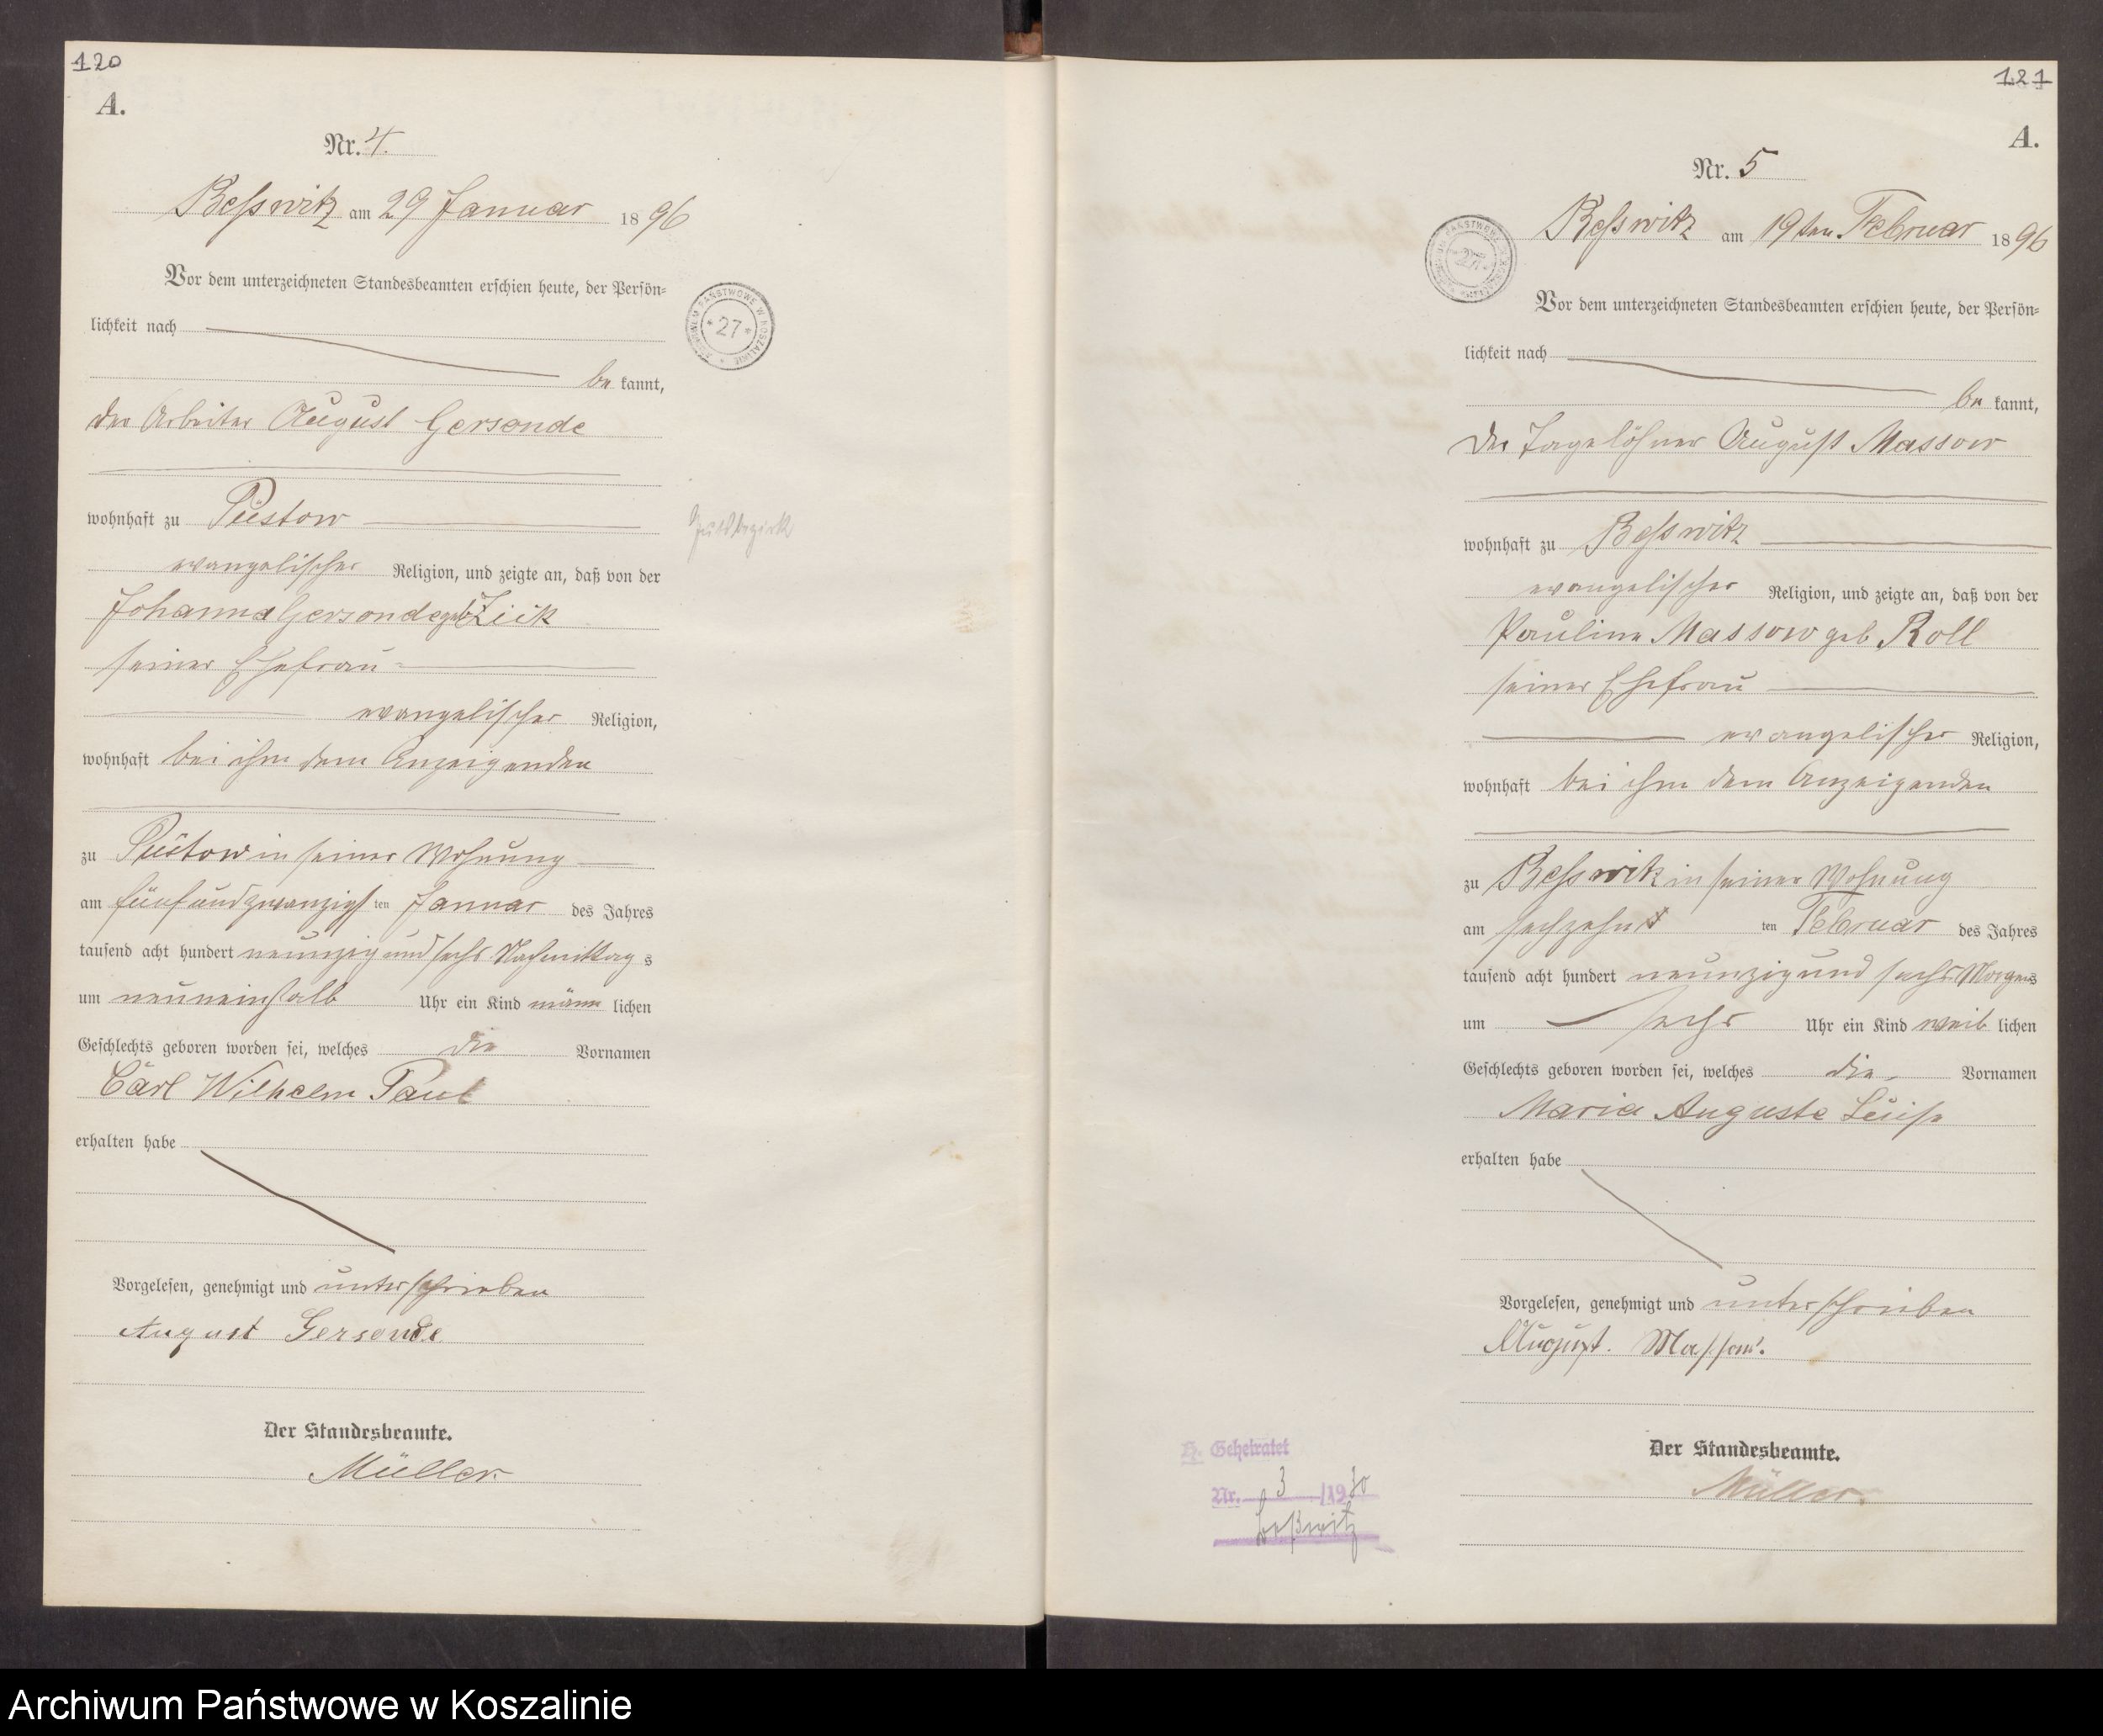 120
A.
Nr. 4.
Besswitz am 29 Januar 1896
Vor dem unterzeichneten Standesbeamten erschien heute, der Persön-
lichkeit nach
be kannt,
der Arbeiter August Gersonde
wohnhaft zu Püstow
Gutsbezirk
evangelischer Religion, und zeigte an, daß von der
Johanna Gersonde geb Zick
seiner Ehefrau
evangelischer Religion,
wohnhaft bei ihm dem Anzeigenden
zu Püstow in seiner Wohnung
am fünfundzwanzigsten Januar des Jahres
tausend acht hundert neunzig und sechs Nachmittags
um neuneinhalb Uhr ein Kind männlichen
Geschlechts geboren worden sei, welches die Vornamen
Carl Wilhelm Paul
erhalten habe
Vorgelesen, genehmigt und unterschrieben
August Gersonde
Der Standesbeamte.
Müller.
27
121
A.
Nr. 5
Besswitz am 19ten Februar 1896
Vor dem unterzeichneten Standesbeamten erschien heute, der Persön-
lichkeit nach
be kannt,
Der Tagelöhner August Massow
wohnhaft zu Besswitz
evangelischer Religion, und zeigte an, daß von der
Pauline Massow geb Roll
seiner Ehefrau
evangelischer Religion,
wohnhaft bei ihm dem Anzeigenden
zu Besswitz in seiner Wohnung
am sechzehnten Februar des Jahres
tausend acht hundert neunzig und sechs Morgens
um sechs Uhr ein Kind weiblichen
Geschlechts geboren worden sei, welches die Vornamen
Maria Auguste Luise
erhalten habe
Vorgelesen, genehmigt und unterschrieben
August. Massow.
Der Standesbeamte.
Müller.
H. Geheiratet
Nr. 3 /1930
Beßwitz
Archiwum Państwowe w Koszalinie